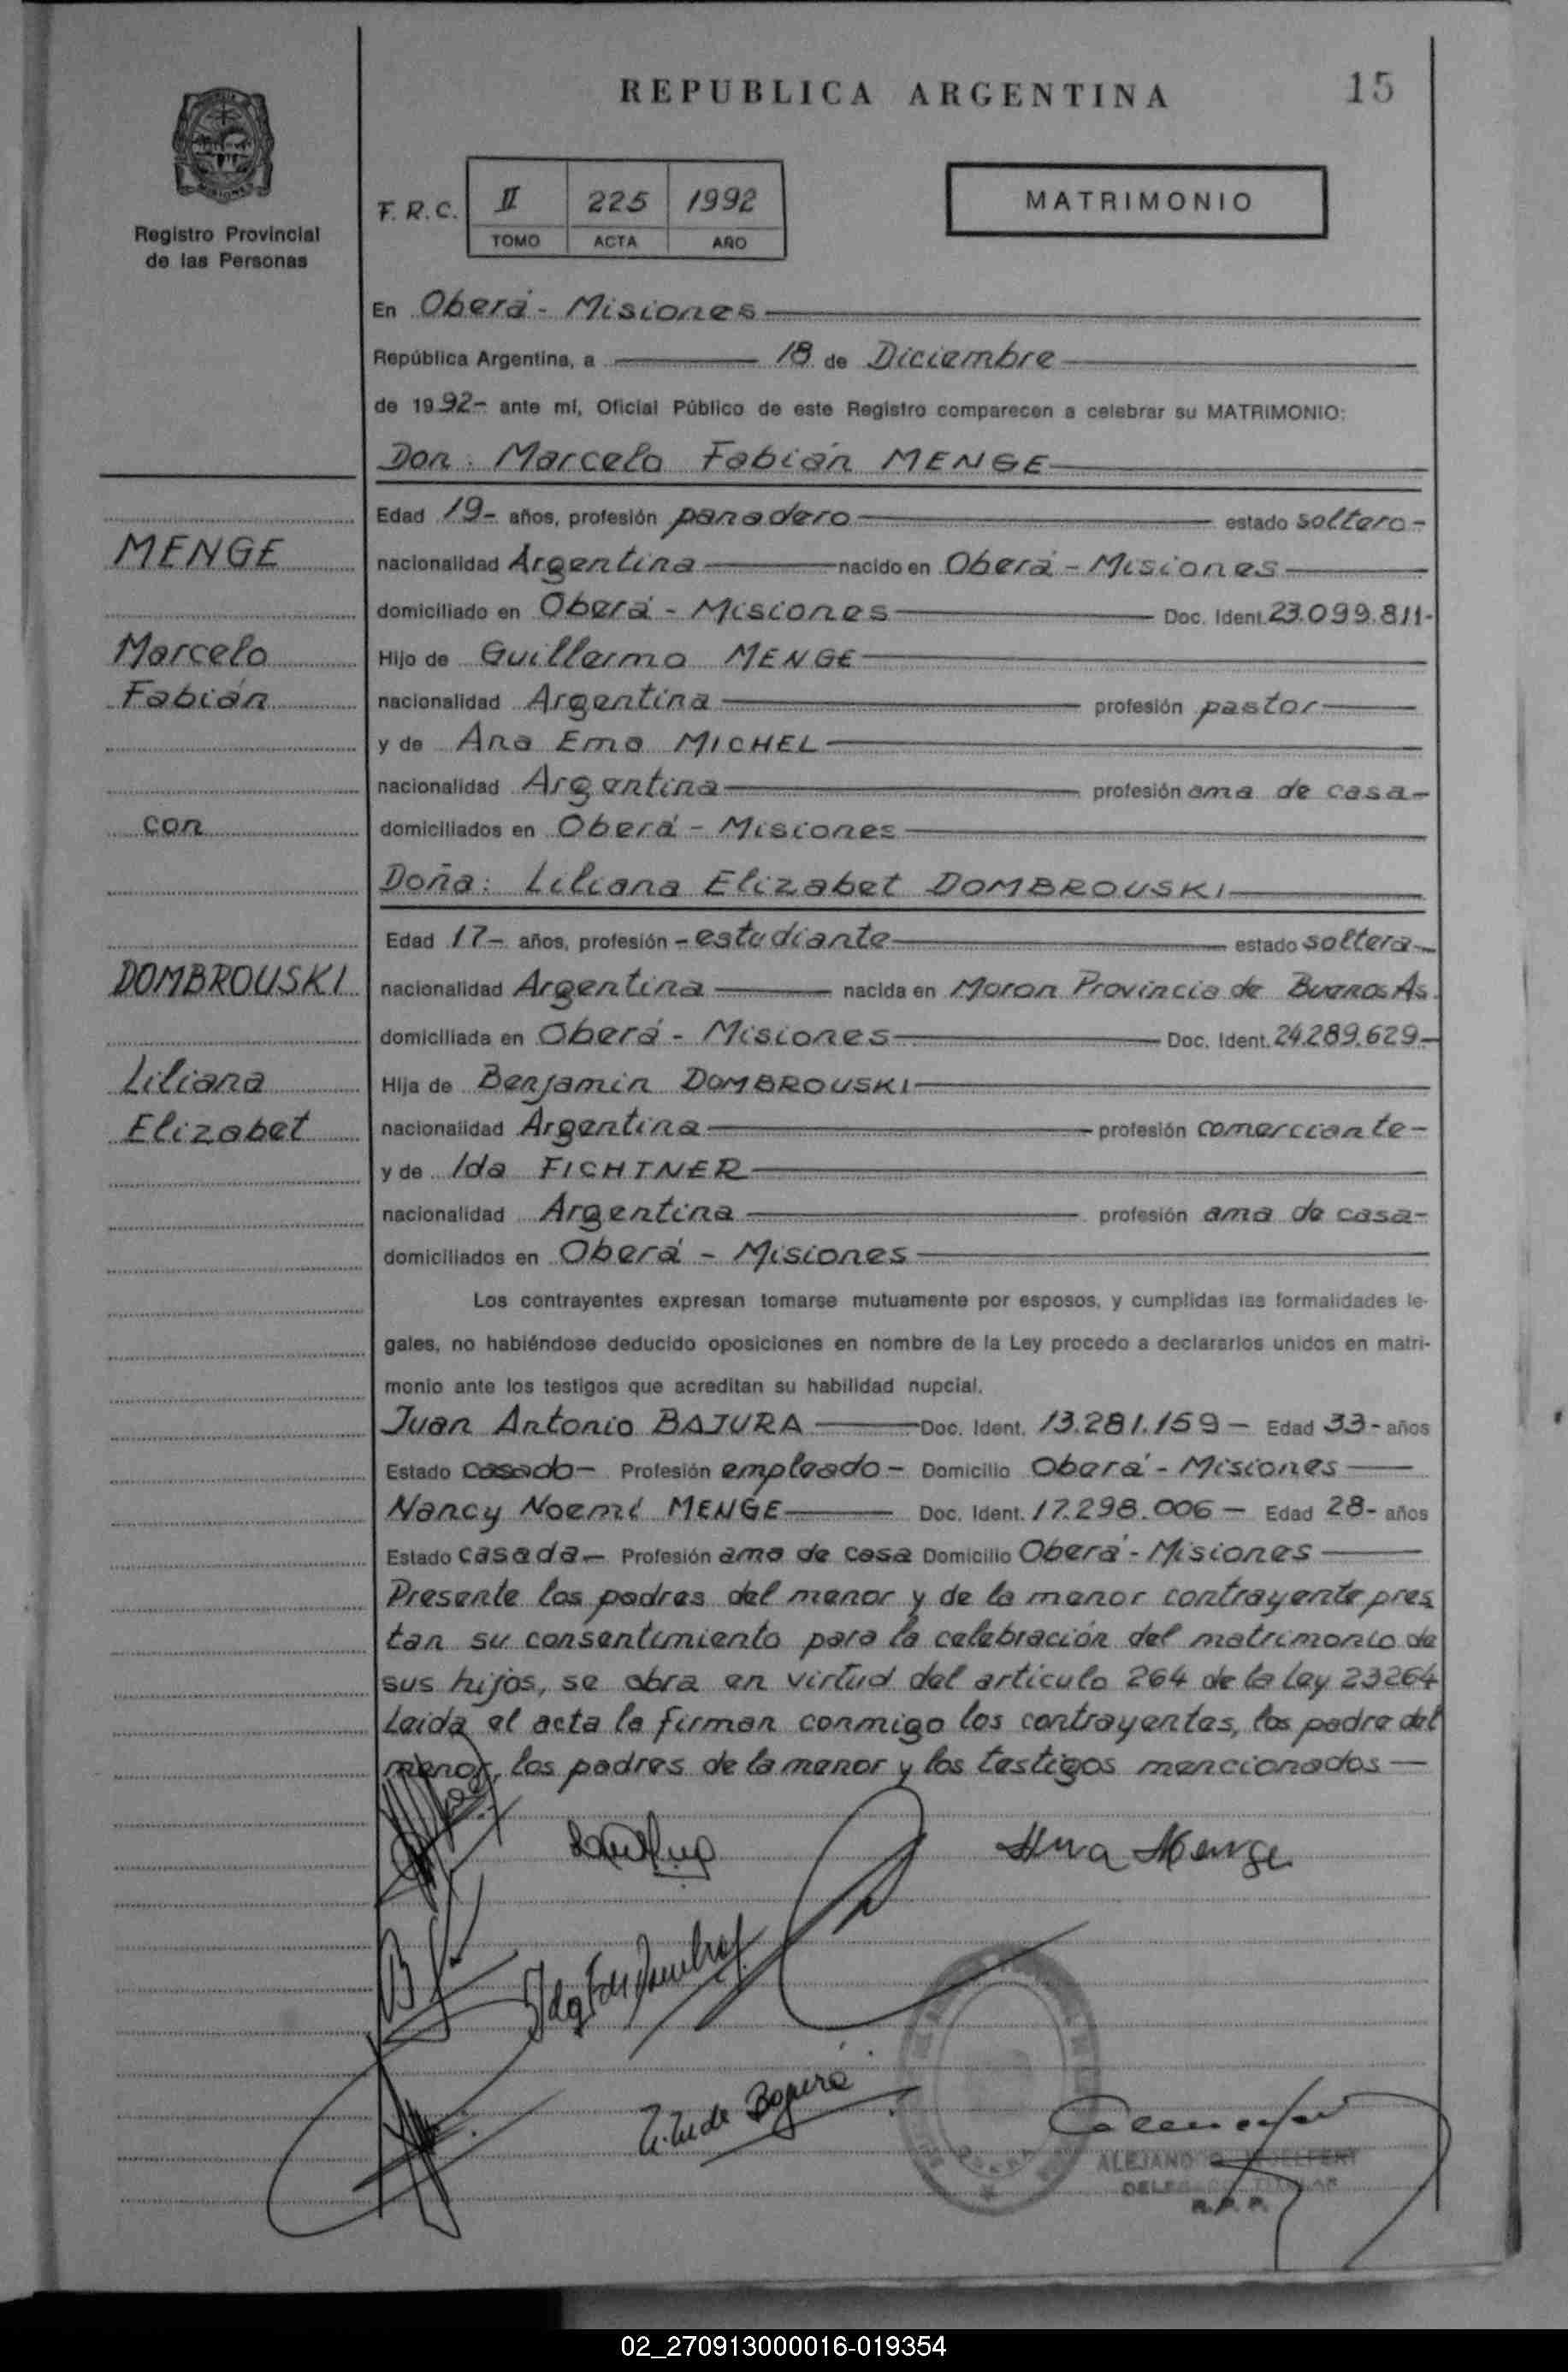 REPUBLICA ARGENTINA
15
Registro Provincial
de las Personas
F. R. C.
II 225 1992
TOMO ACTA AÑO
MATRIMONIO
En Oberá - Misiones
República Argentina, a 18 de Diciembre
de 1992- ante mí, Oficial Público de este Registro comparecen a celebrar su MATRIMONIO:
Don: Marcelo Fabián MENGE
Edad 19- años, profesión panadero estado soltero-
MENGE
nacionalidad Argentina nacido en Oberá - Misiones
domiciliado en Oberá - Misiones Doc. Ident. 23.099.811-
Marcelo
Hijo de Guillermo MENGE
Fabián
nacionalidad Argentina profesión pastor
y de Ana Ema MICHEL
nacionalidad Argentina profesión ama de casa-
con
domiciliados en Oberá - Misiones
Doña: Liliana Elizabet DOMBROUSKI
Edad 17- años, profesión - estudiante estado soltera-
DOMBROUSKI
nacionalidad Argentina nacida en Moron Provincia de Buenos As.
domiciliada en Oberá - Misiones Doc. Ident. 24.289.629-
Liliana
Hija de Benjamin DOMBROUSKI
Elizabet
nacionalidad Argentina profesión comerciante-
y de Ida FICHTNER
nacionalidad Argentina profesión ama de casa-
domiciliados en Oberá - Misiones
Los contrayentes expresan tomarse mutuamente por esposos, y cumplidas las formalidades le-
gales, no habiéndose deducido oposiciones en nombre de la Ley procedo a declararlos unidos en matri-
monio ante los testigos que acreditan su habilidad nupcial.
Juan Antonio BAJURA Doc. Ident. 13.281.159- Edad 33- años
Estado casado- Profesión empleado- Domicilio Oberá - Misiones
Nancy Noemí MENGE Doc. Ident. 17.298.006- Edad 28- años
Estado casada- Profesión ama de casa Domicilio Oberá - Misiones
Presente los padres del menor y de la menor contrayente pres
tan su consentimiento para la celebración del matrimonio de
sus hijos, se obra en virtud del articulo 264 de la Ley 23264
Leida el acta la firman conmigo los contrayentes, los padre del
menor, los padres de la menor y los testigos mencionados
Menge
ALEJANDRO
R. P. P.
02_270913000016-019354